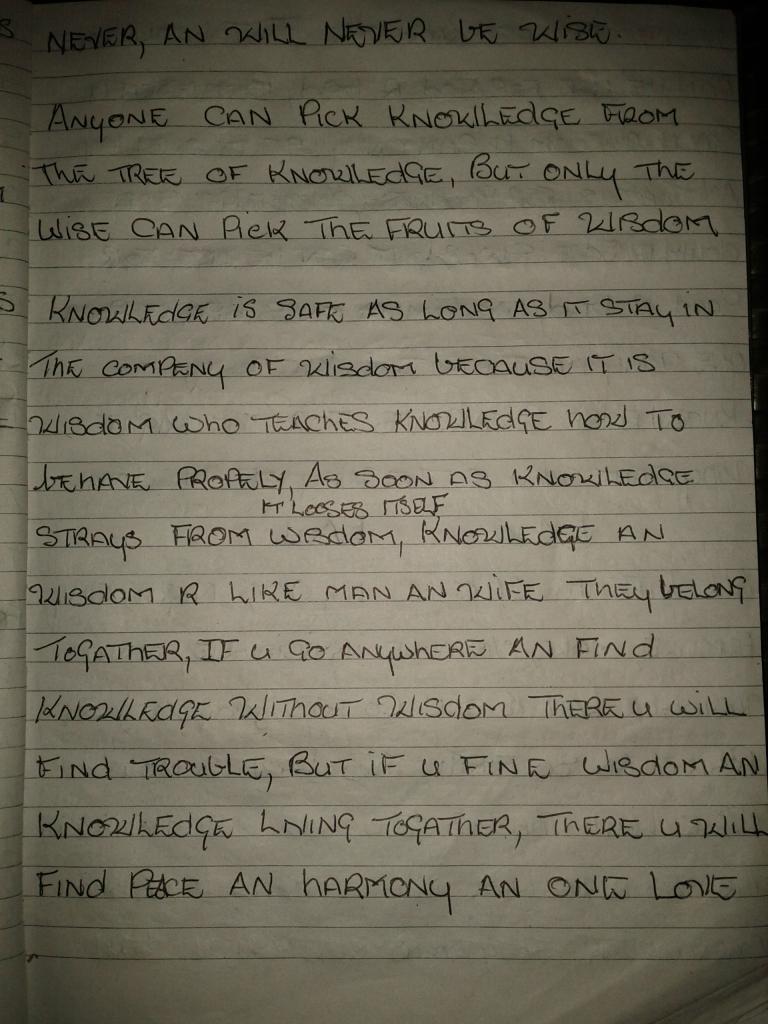 NEVER, AN WILL NEVER BE WISE.
ANYONE CAN PICK KNOWLEDGE FROM
THE TREE OF KNOWLEDGE, BUT ONLY THE
WISE CAN PICK THE FRUITS OF WISDOM
KNOWLEDGE IS SAFE AS LONG AS IT STAY IN
THE COMPENY OF WISDOM BECAUSE IT IS
WISDOM WHO TEACHES KNOWLEDGE HOW TO
BEHAVE PROPELY, AS SOON AS KNOWLEDGE
IT LOOSES ITSELF
STRAYS FROM WISDOM, KNOWLEDGE AN
WISDOM R LIKE MAN AN WIFE THEY BELONG
TOGATHER, IF U GO ANYWHERE AN FIND
KNOWLEDGE WITHOUT WISDOM THERE U WILL
FIND TROUBLE, BUT IF U FINE WISDOM AN
KNOWLEDGE LIVING TOGATHER, THERE U WILL
FIND PEACE AN HARMONY AN ONE LOVE